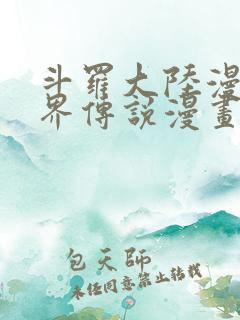 斗羅大陸漫
界傳說漫畫
包天師
未經同意禁止轉載